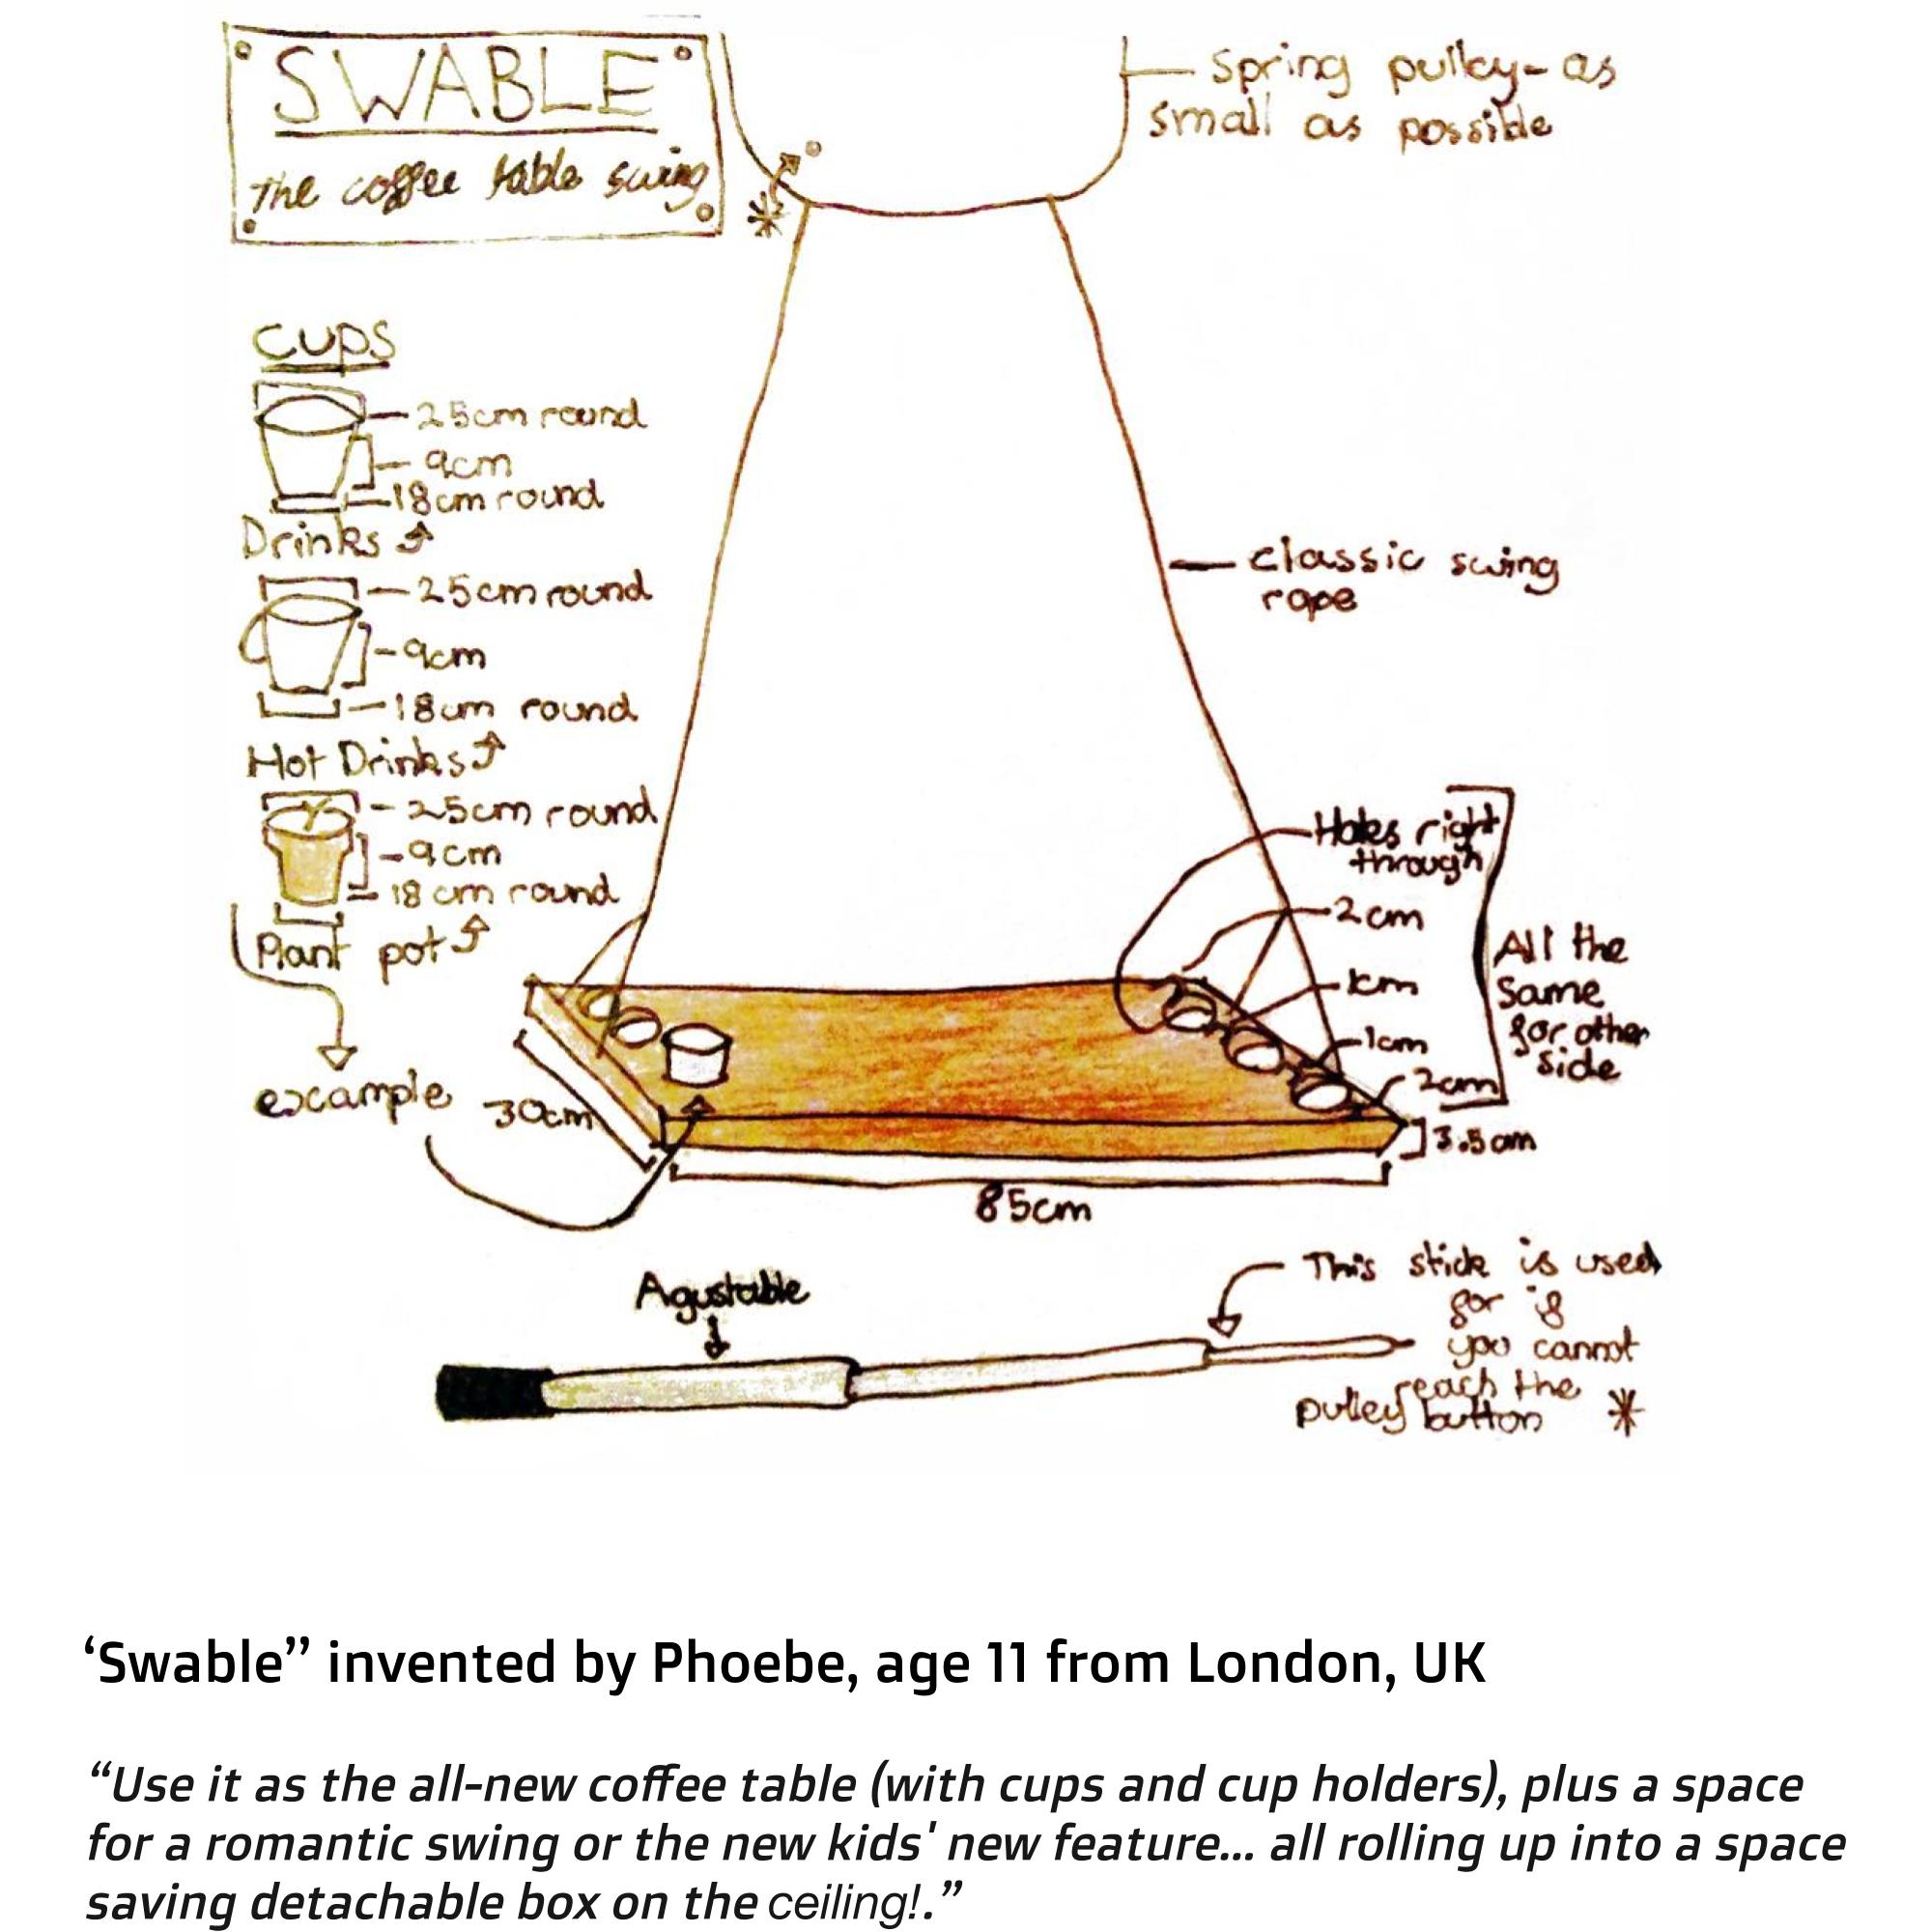 SWABLE
The coffee table swing
Spring pulley - as
small as possible
*
CUPS
25cm round
9cm
18cm round
Drinks
25cm round
9cm
18cm round
Hot Drinks
25cm round
9cm
18cm round
Plant pot
example
classic swing
rope
Holes right
through
2cm
1cm
1cm
2cm
All the
same
for other
side
3.5cm
30cm
85cm
Agustable
This stick is used
for if
you cannot
reach the
pulley button *
‘Swable” invented by Phoebe, age 11 from London, UK
“Use it as the all-new coffee table (with cups and cup holders), plus a space
for a romantic swing or the new kids' new feature... all rolling up into a space
saving detachable box on the ceiling!.”